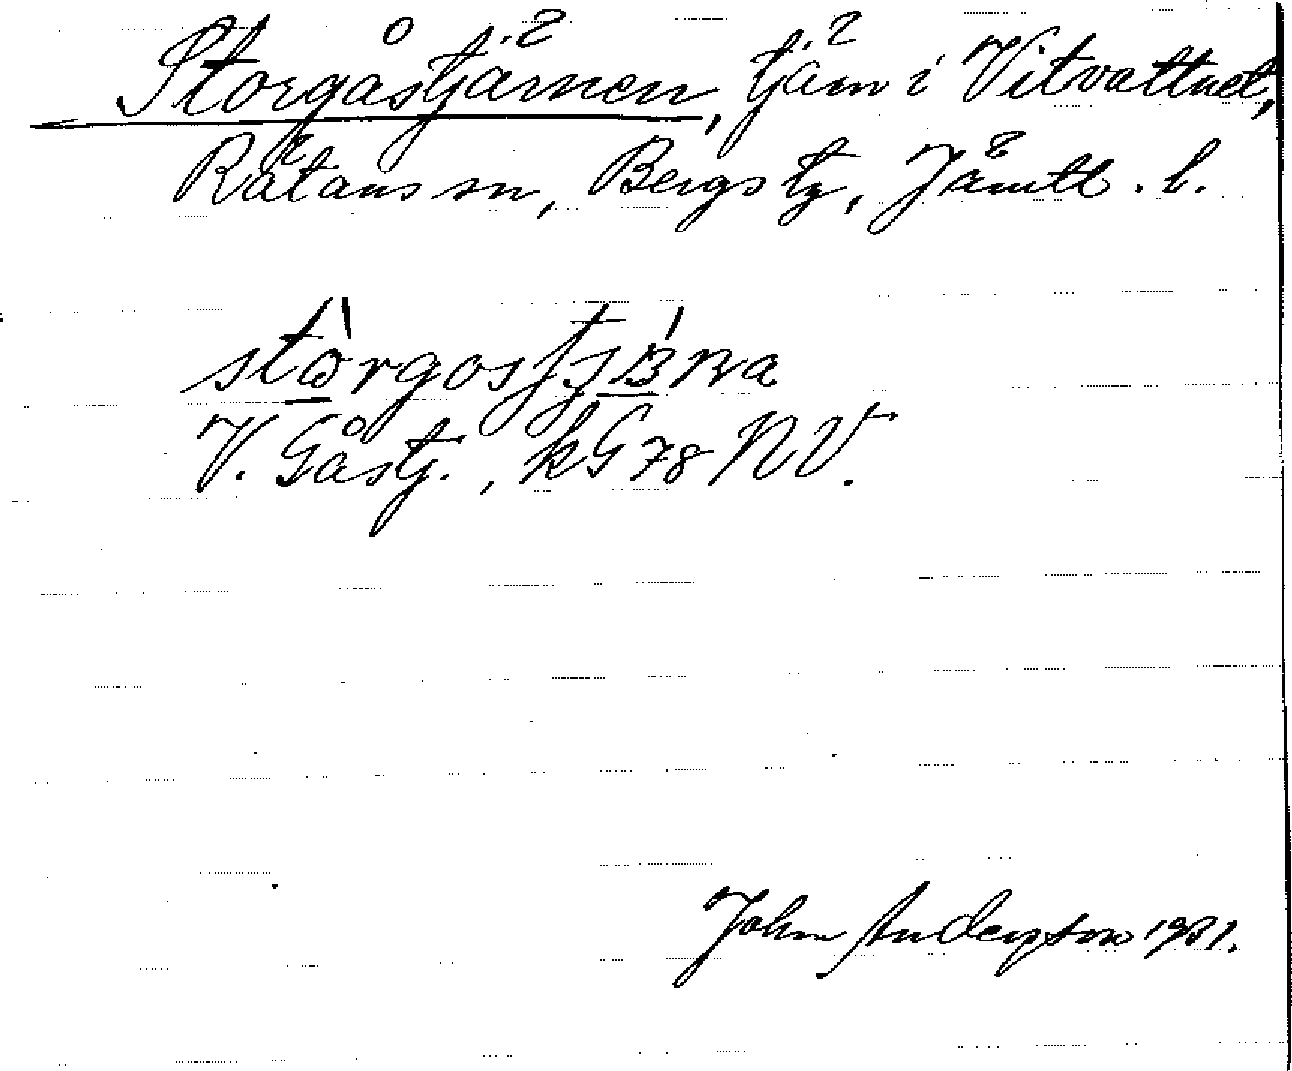 Storgåstjärnen, tjärn i Vitvattnet,
Rätans sn, Bergs tg, Jämtl. l.
V. Gåstj., kG 78 NV.
John Anderson 1931.